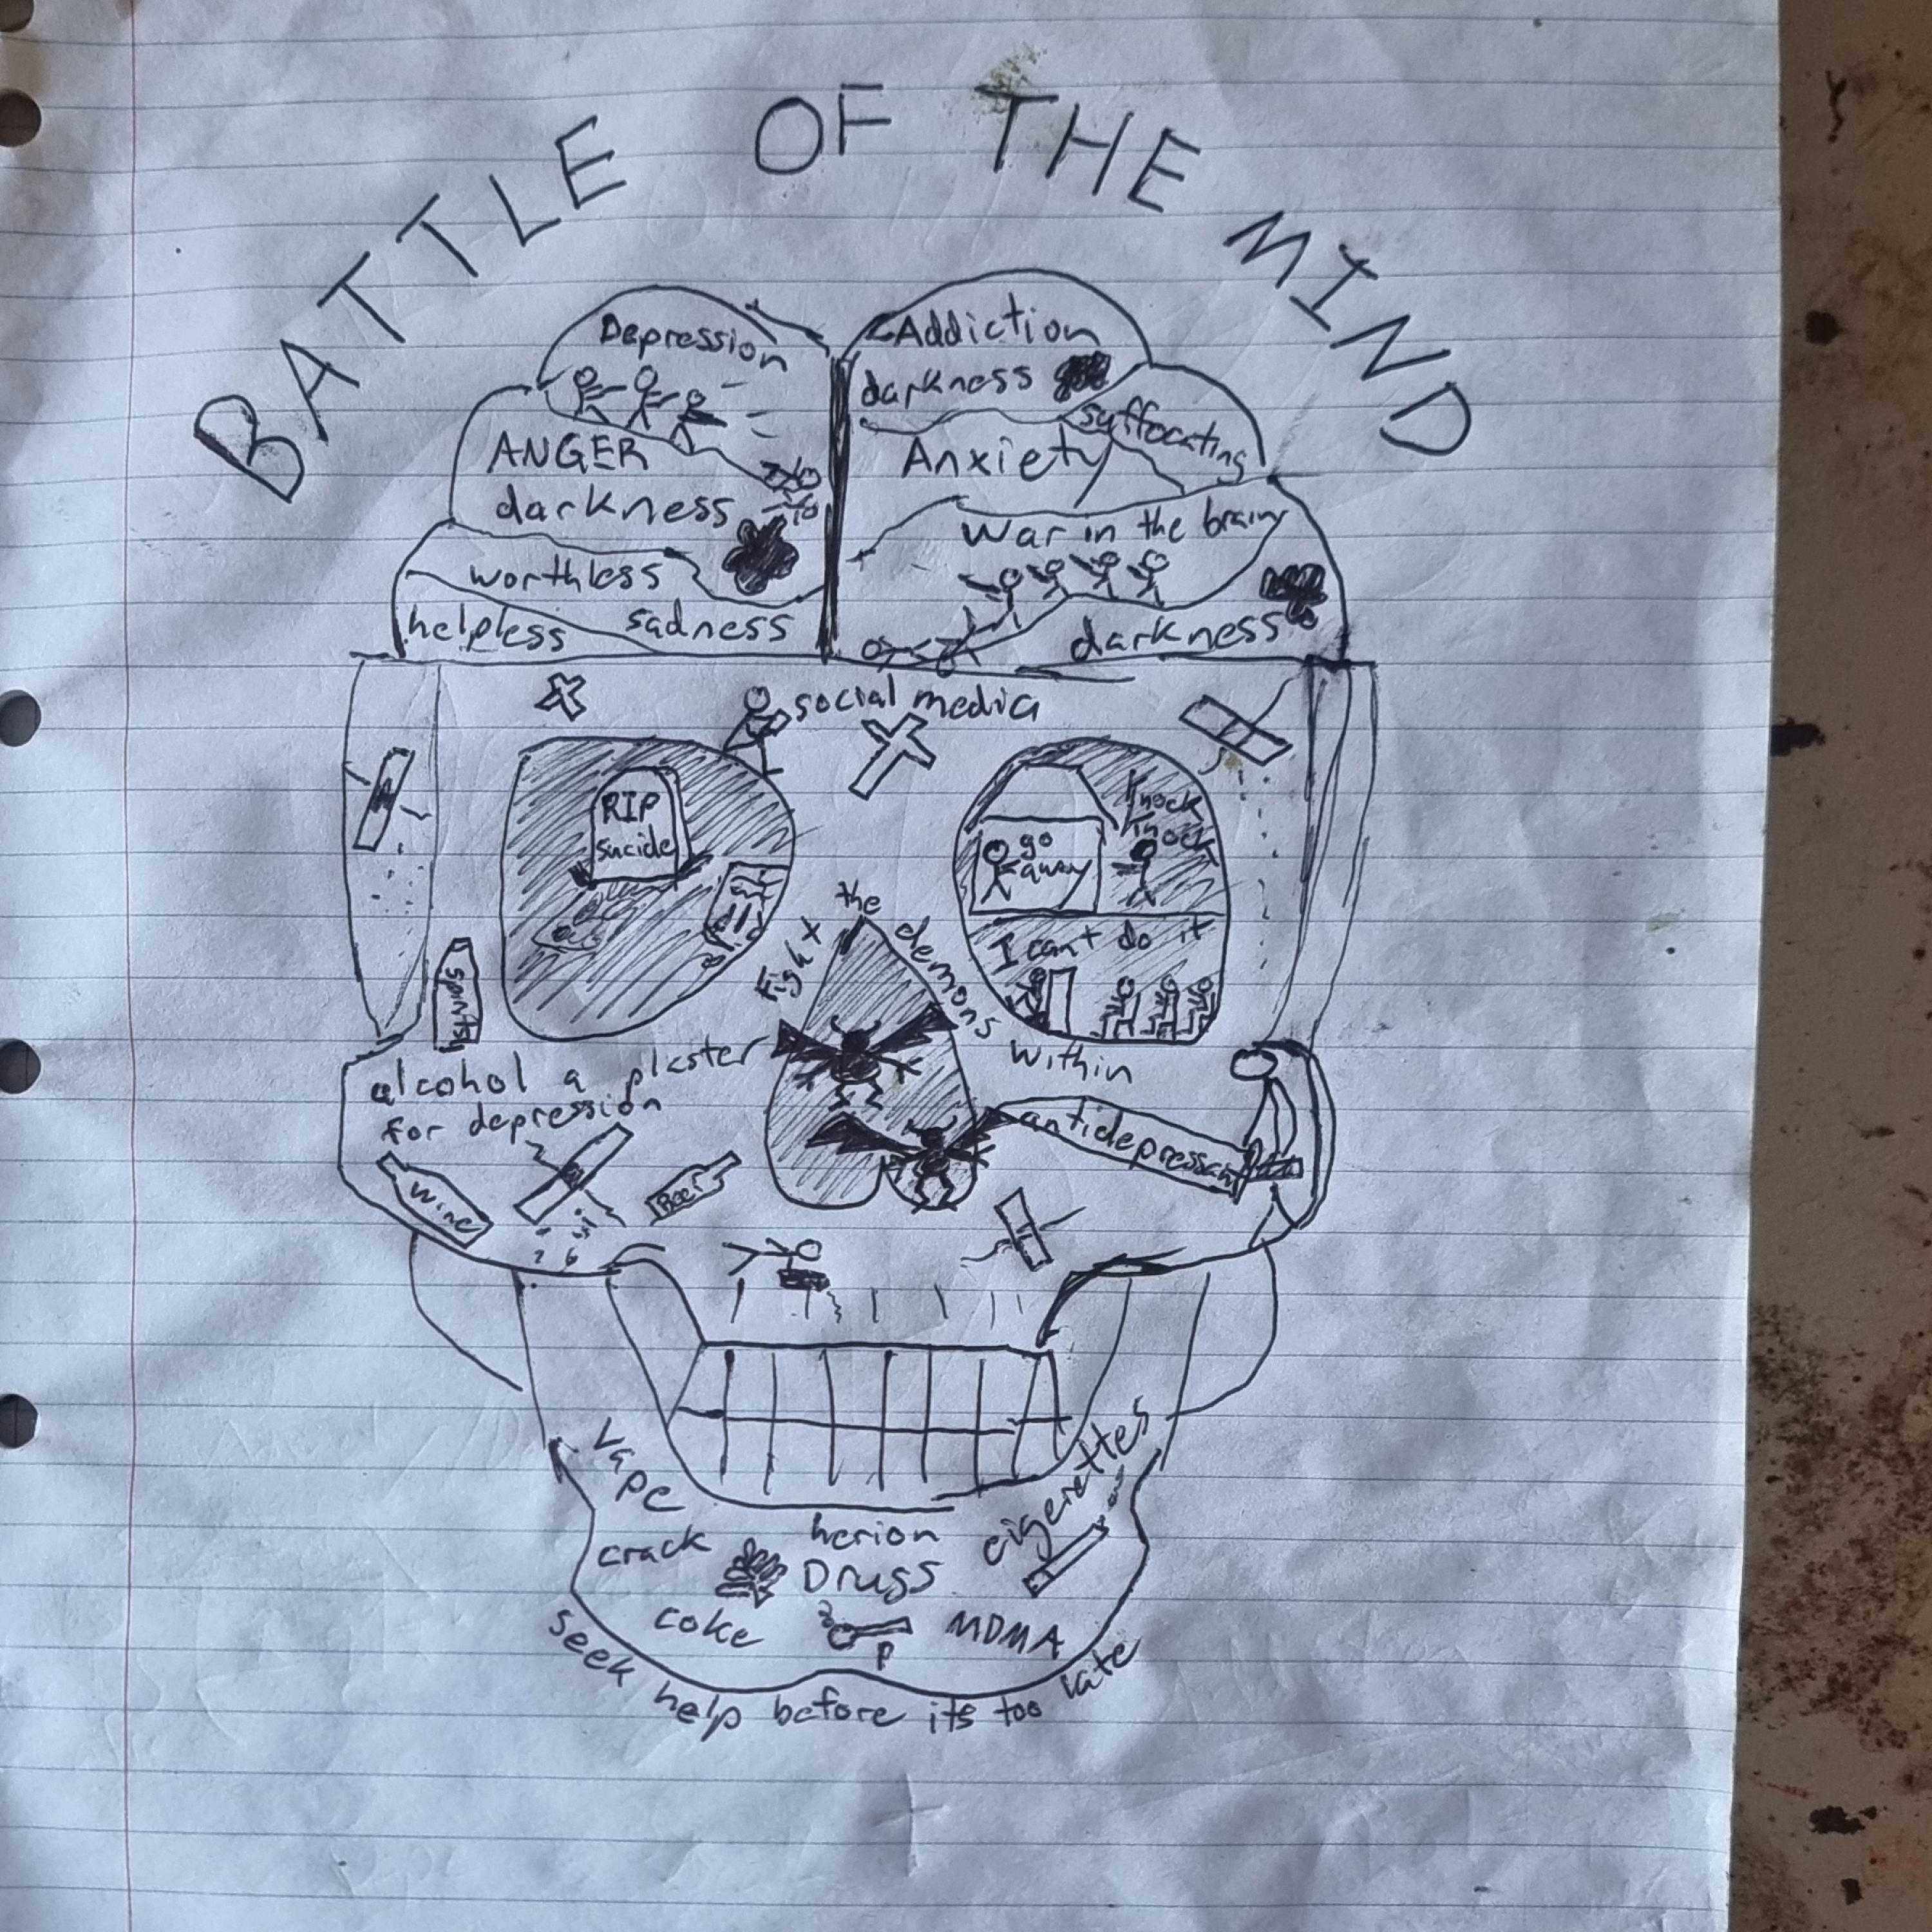 BATTLE OF THE MIND
Depression
ANGER
darkness
worthless
helpless
sadness
Addiction
darkness
suffocating
Anxiety
War in the brain
darkness
social media
RIP
sucide
Knock
Knock
go
away
I can't do it
Fight the demons within
spirits
alcohol a plaster
for depression
antidepressant
Wine
Beer
Vape
cigerettes
crack
herion
Drugs
coke
MDMA
seek help before its too late